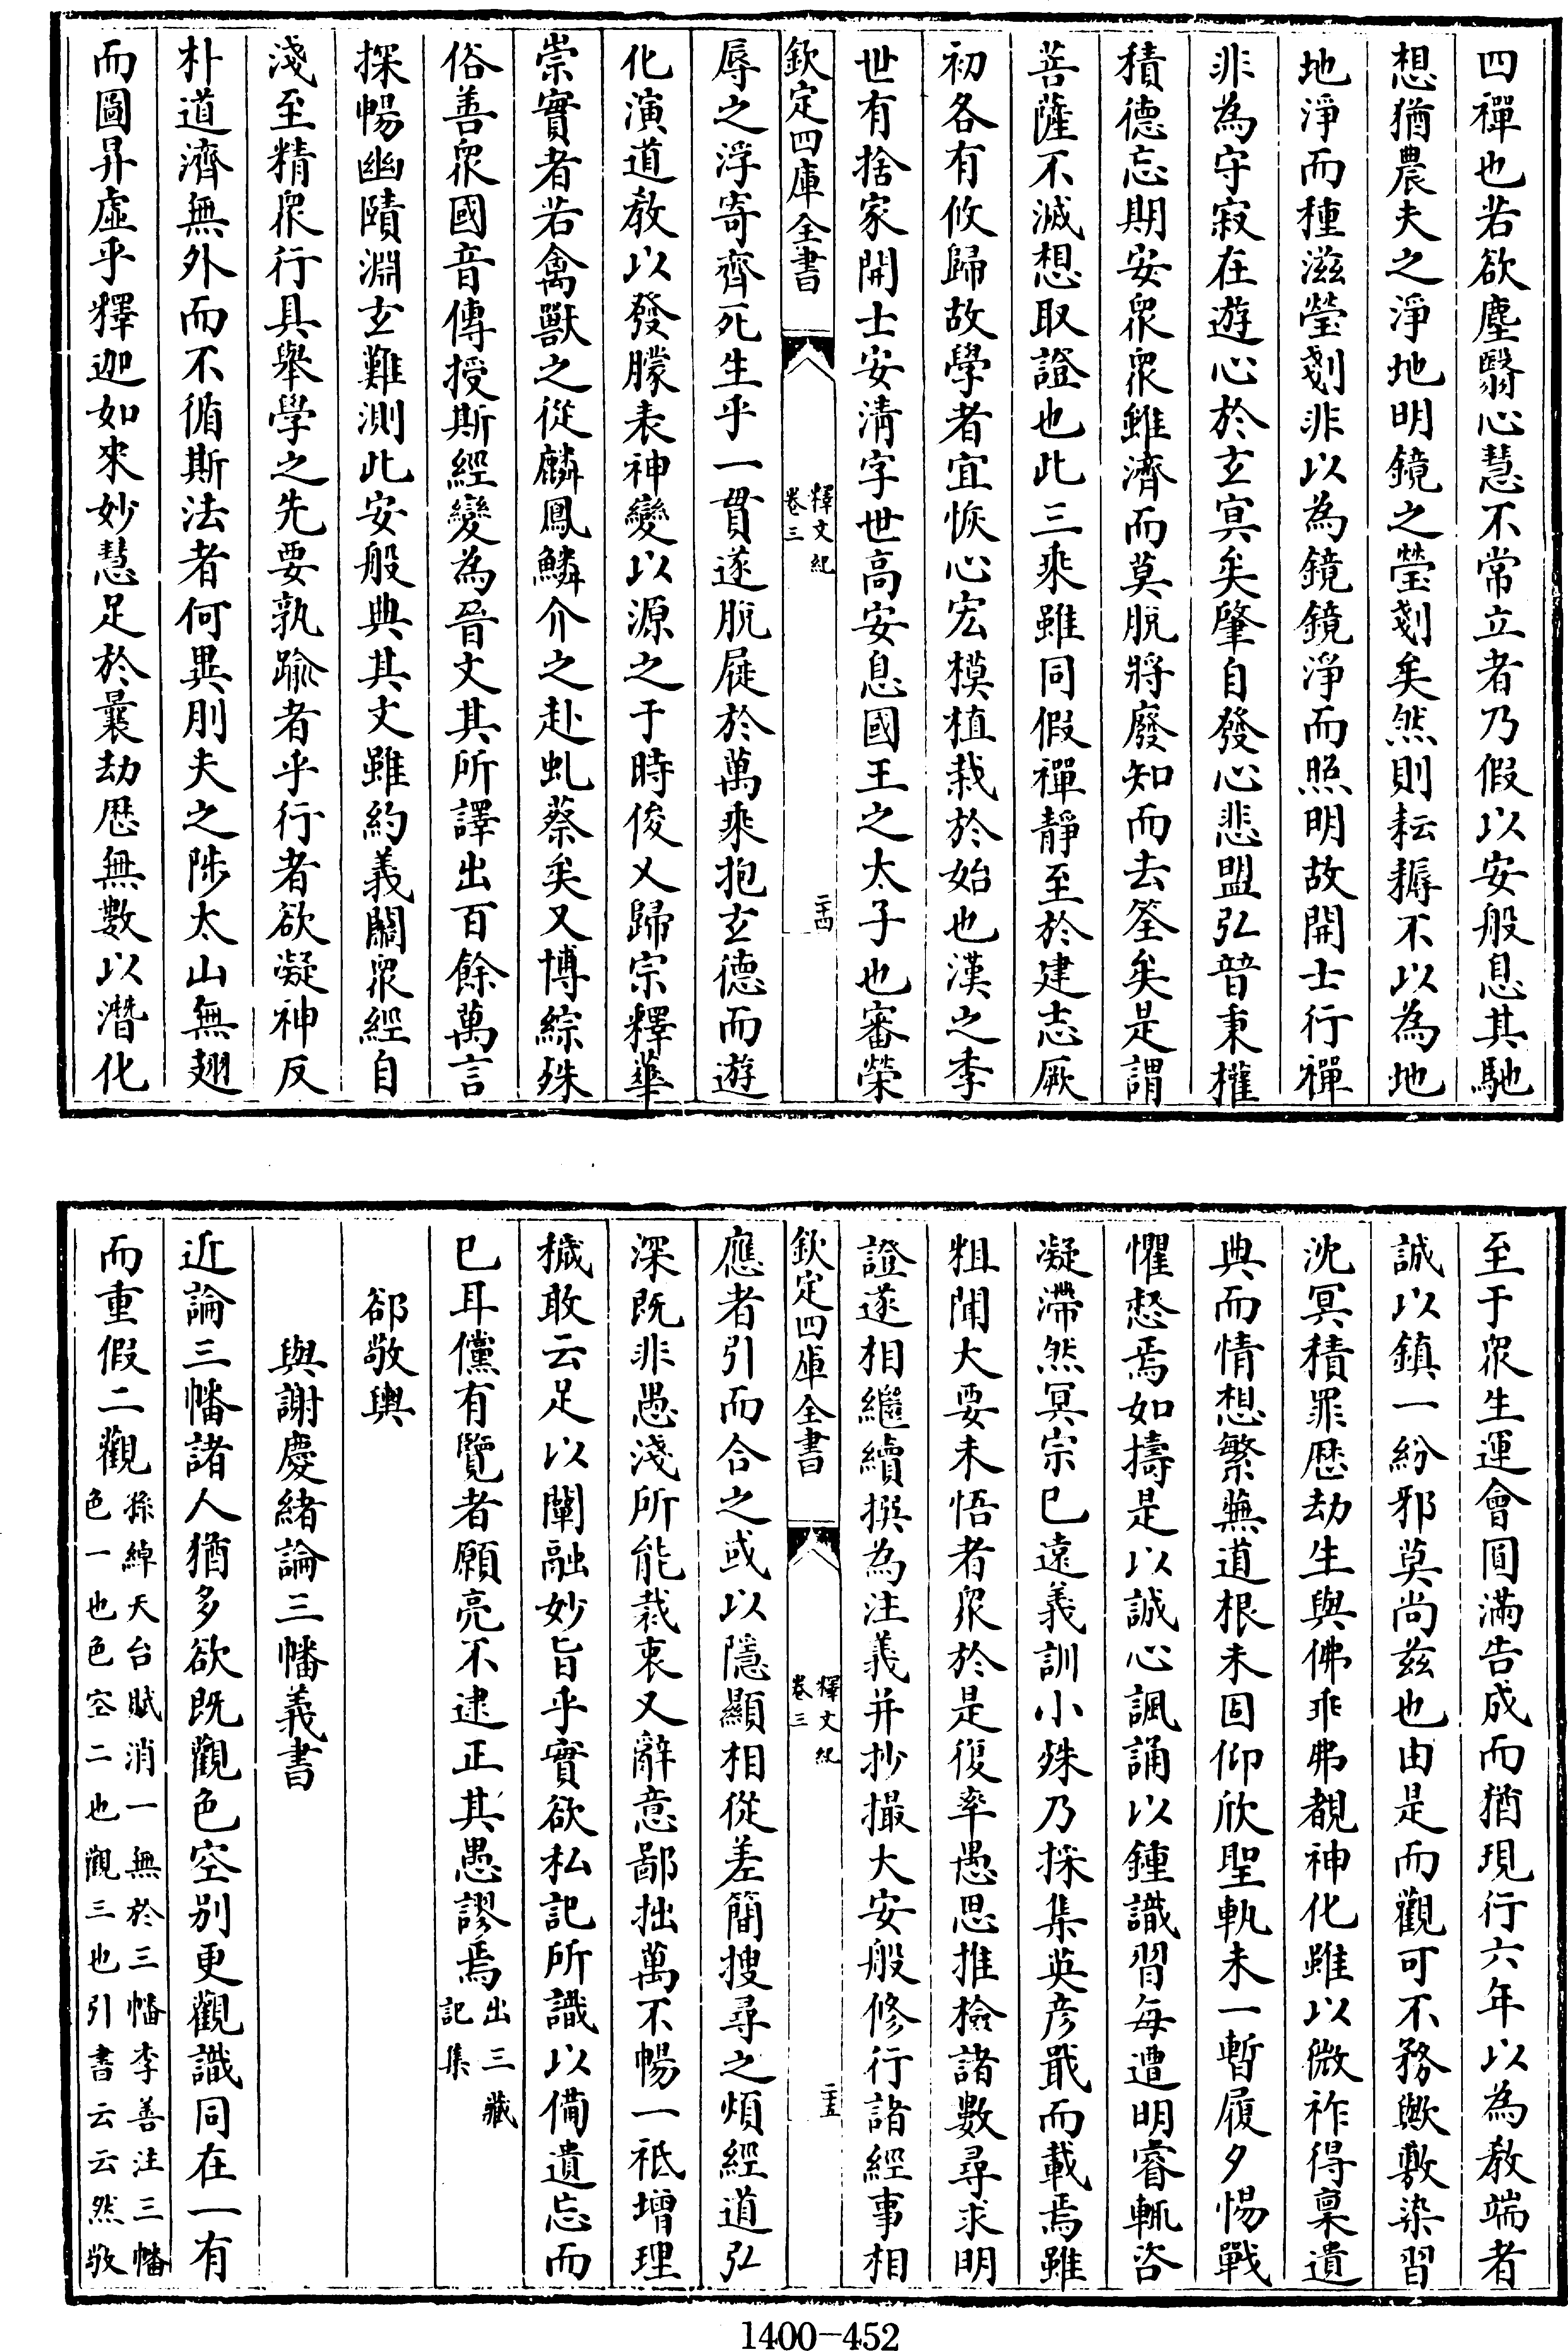 四禪也若欲塵翳心慧不常立者乃假以安般息其馳
想猶農夫之淨地明鏡之瑩剗矣然則耘耨不以為地
地淨而種滋瑩剗非以為鏡鏡淨而照明故開士行禪
非為守寂在遊心於玄冥矣肇自發心悲盟弘普秉權
積德忘期安衆衆雖濟而莫脱將廢知而去筌矣是謂
菩薩不滅想取證也此三乘雖同假禪靜至於建志厥
初各有攸歸故學者宜恢心宏模植栽於始也漢之季
世有捨家開士安清字世高安息國王之太子也審榮
欽定四庫全書
釋文紀
卷三
二十四
辱之浮寄齊死生乎一貫遂脱屣於萬乘抱玄德而遊
化演道教以發朦表神變以源之于時俊乂歸宗釋華
崇實者若禽獸之從麟鳳鱗介之赴虬蔡矣又博綜殊
俗善衆國音傳授斯經變為晉文其所譯出百餘萬言
探暢幽賾淵玄難測此安般典其文雖約義關衆經自
淺至精衆行具舉學之先要孰踰者乎行者欲凝神反
朴道濟無外而不循斯法者何異刖夫之陟太山無翅
而圖昇虛乎釋迦如來妙慧足於曩劫歴無數以潛化
至于衆生運會圓滿告成而猶現行六年以為教端者
誠以鎮一紛邪莫尚兹也由是而觀可不務歟敷染習
沈冥積罪歴劫生與佛乖弗覩神化雖以微祚得稟遺
典而情想繁蕪道根未固仰欣聖軌未一暫履夕惕戰
懼惄焉如擣是以誠心諷誦以鍾識習每遭明睿輒咨
凝滯然冥宗已遠義訓小殊乃採集英彦戢而載焉雖
粗聞大要未悟者衆於是復率愚思推檢諸數尋求明
證遂相繼續撰為注義并抄撮大安般修行諸經事相
欽定四庫全書
釋文紀
卷三
二十五
應者引而合之或以隱顯相從差簡搜尋之煩經道弘
深既非愚淺所能裁衷又辭意鄙拙萬不暢一祇增理
穢敢云足以闡融妙旨乎實欲私記所識以備遺忘而
已耳儻有覽者願亮不逮正其愚謬焉出三藏
記集
郤敬輿
與謝慶緒論三幡義書
近論三幡諸人猶多欲既觀色空别更觀識同在一有
而重假二觀孫綽天台賦消一無於三幡李善注三幡
色一也色空二也觀三也引書云云然敬
1400-452